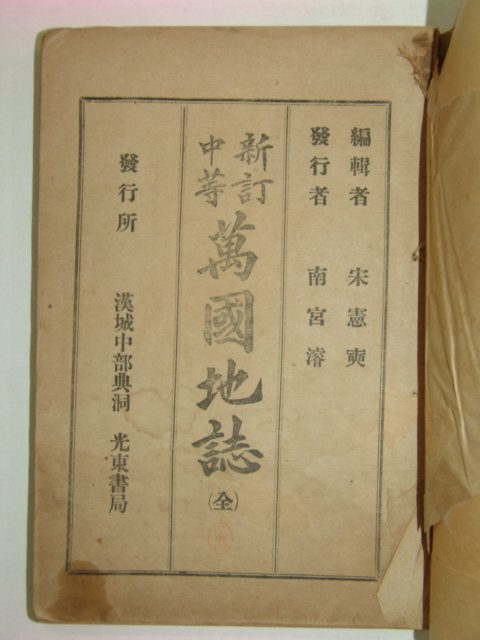 編輯者 宋憲奭
發行者 南宮濬
新訂
中等
萬國地誌
(全)
發行所 漢城中部典洞 光東書局